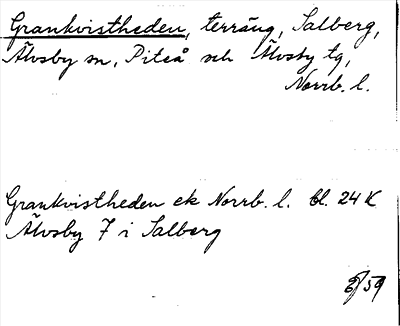 Grankvistheden, terräng, Salberg,
Älvsby sn, Piteå och Älvsby tg,
Norrb. l.
Grankvistheden ek Norrb. l. bl. 24 K
Älvsby 7 i Salberg
59